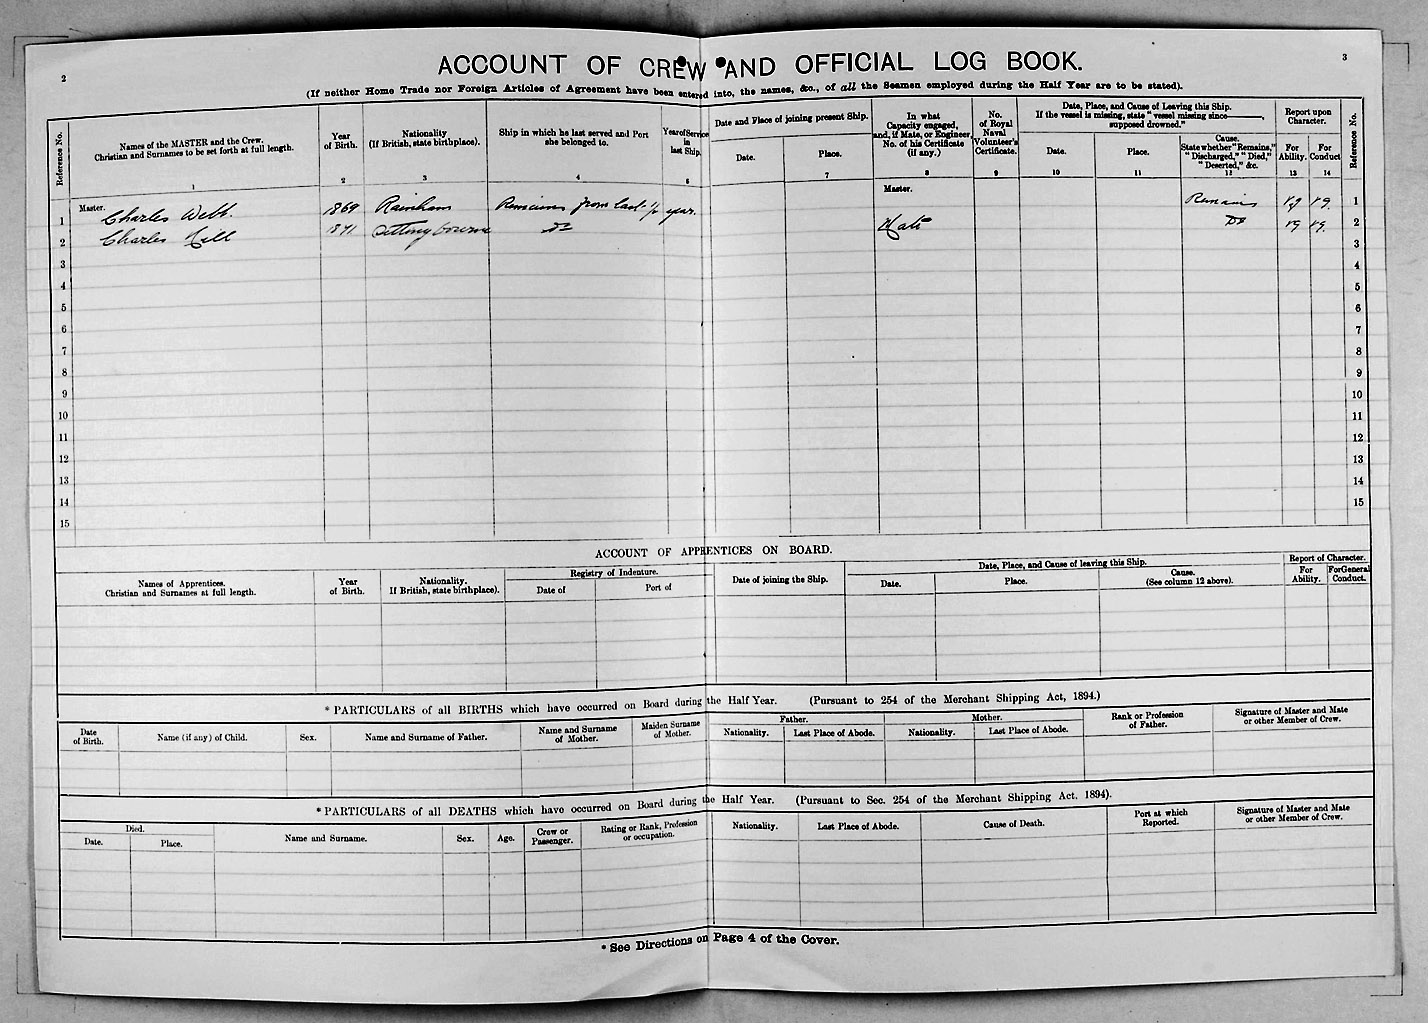 2
3
ACCOUNT OF CREW AND OFFICIAL LOG BOOK.
(If neither Home Trade nor Foreign Articles of Agreement have been entered into, the names, &c., of all the Seamen employed during the Half Year are to be stated).
Reference No.
Names of the MASTER and the Crew. Christian and Surnames to be set forth at full length.
Year of Birth.
Nationality (If British, state birthplace).
Ship in which he last served and Port she belonged to.
Year of Service in last Ship.
Date and Place of joining present Ship.
Date.
Place.
In what Capacity engaged, and, if Mate, or Engineer, No. of his Certificate (if any.)
No. of Royal Naval Volunteer's Certificate.
Date, Place, and Cause of Leaving this Ship.
If the vessel is missing, state "vessel missing since———, supposed drowned."
Date.
Place.
Cause. State whether "Remains," "Discharged," "Died," "Deserted," &c.
Report upon Character.
For Ability.
For Conduct
Reference No.
1 2 3 4 5 7 8 9 10 11 12 13 14
1 Master. Charles Webb. 1869 Rainham Remains from last ½ year. Master. Remains Vg Vg. 1
2 Charles Hill 1871 Sittingbourne Do Mate Do Vg Vg. 2
3 3
4 4
5 5
6 6
7 7
8 8
9 9
10 10
11 11
12 12
13 13
14 14
15 15
ACCOUNT OF APPRENTICES ON BOARD.
Names of Apprentices. Christian and Surnames at full length.
Year of Birth.
Nationality. If British, state birthplace).
Registry of Indenture.
Date of
Port of
Date of joining the Ship.
Date, Place, and Cause of leaving this Ship.
Date.
Place.
Cause. (See column 12 above).
Report of Character.
For Ability.
For General Conduct.
* PARTICULARS of all BIRTHS which have occurred on Board during the Half Year. (Pursuant to 254 of the Merchant Shipping Act, 1894.)
Date of Birth.
Name (if any) of Child.
Sex.
Name and Surname of Father.
Name and Surname of Mother.
Maiden Surname of Mother.
Father.
Nationality.
Last Place of Abode.
Mother.
Nationality.
Last Place of Abode.
Rank or Profession of Father.
Signature of Master and Mate or other Member of Crew.
* PARTICULARS of all DEATHS which have occurred on Board during the Half Year. (Pursuant to Sec. 254 of the Merchant Shipping Act. 1894).
Died.
Date.
Place.
Name and Surname.
Sex.
Age.
Crew or Passenger.
Rating or Rank, Profession or occupation.
Nationality.
Last Place of Abode.
Cause of Death.
Port at which Reported.
Signature of Master and Mate or other Member of Crew.
* See Directions on Page 4 of the Cover.